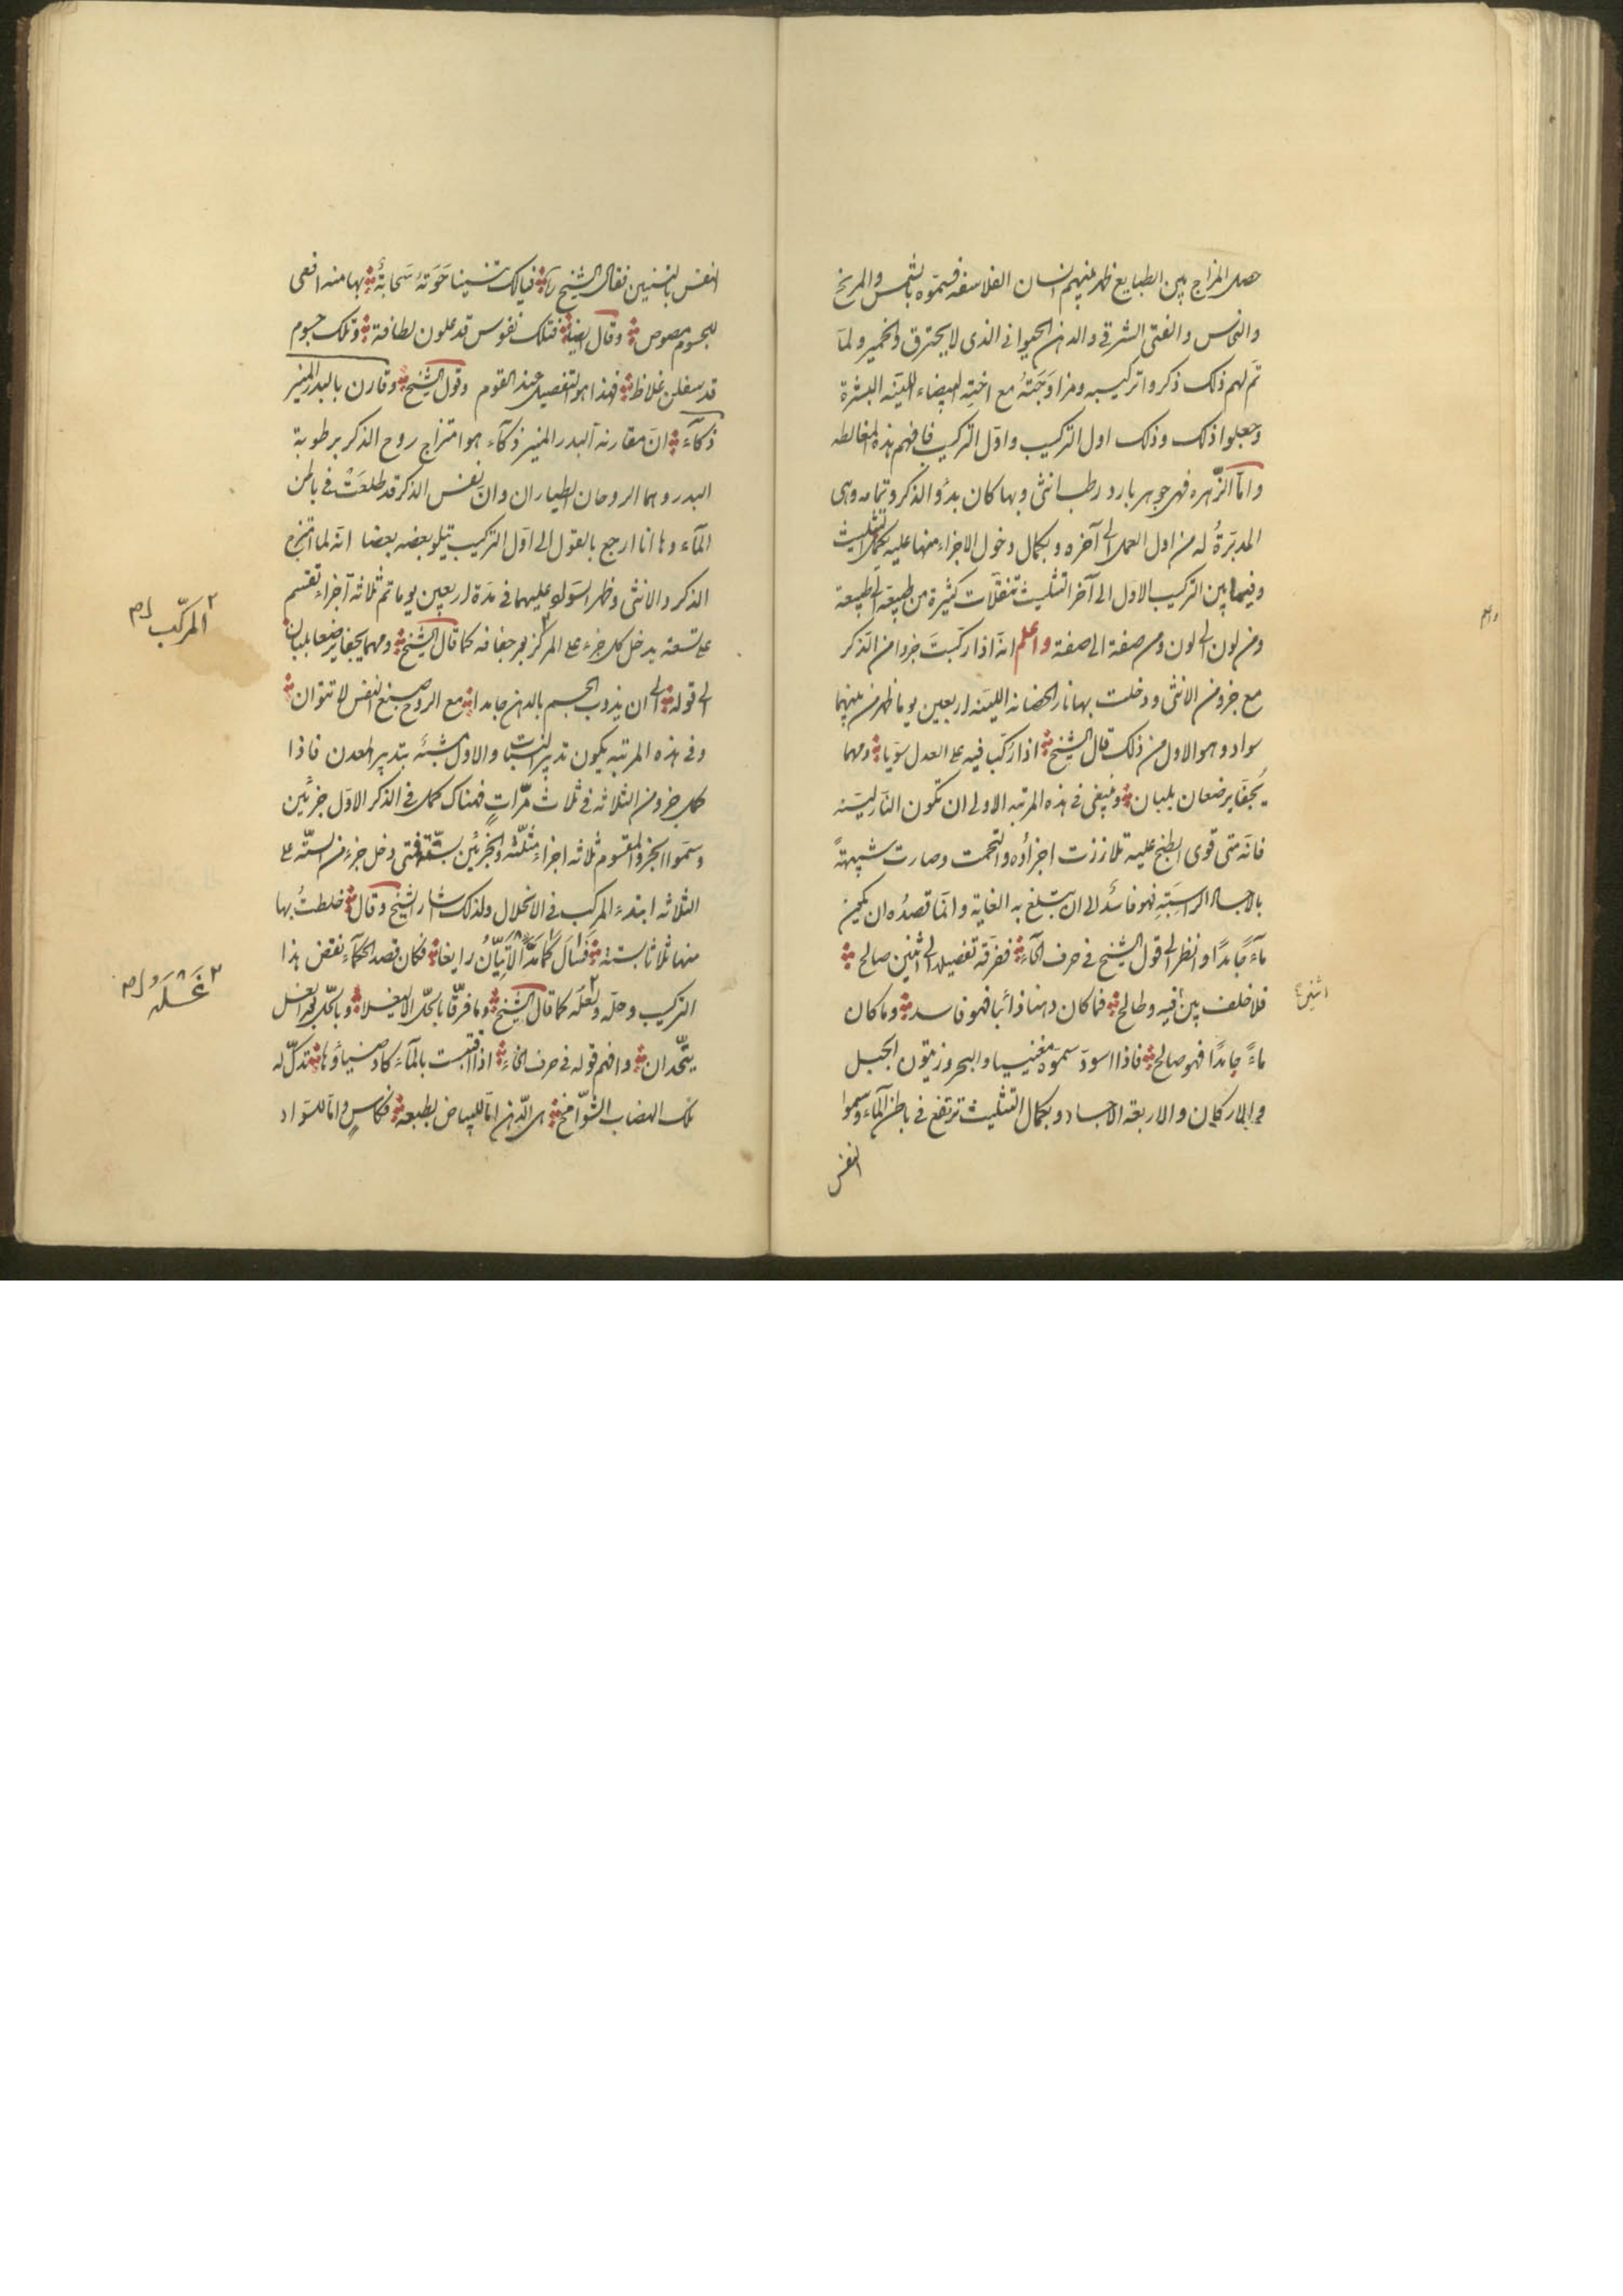 حصل المزاج بين الطبايع ظهر منهم انسان الفلاسفه فسمّوه بالشمس والمريخ
والنحاس والفتى الشرقي والدهن الحيواني الذي لا يحترق والخمير ولمّا
تم لهم ذلك ذكروا تركيبه ومزاوجته مع اخته البيضاء اللينه البشرة
وجعلوا ذلك وذلك اول التركيب واوّل التركيب فافهم هذه المغالطه
وامّا الزّهره فهي جوهر بارد رطب انثى وبها كان بدؤ الذكر وتمامه وهي
المدبّرةُ له من اول العمل الى آخره وبكمال دخول الاجزاء منها عليه يكمل التثليث
وفيما بين التركيب الاوّل الى آخر التثليث تنقّلات كثيرة من طبيعة الى طبيعة
ومن لون الى لون ومن صفة الى صفة واعلم انه اذا ركّبتَ جزوا من الذكر
مع جزو من الانثى ودخلت بها نار الحضانه الليّنه اربعين يوما ظهر من بينهما
سواد وهو الاول من ذلك قال الشيخ اذا ركّب فيه على العدل سوّيا ومهما
يُجفّا يرضعان بلبان وينبغي في هذه المرتبه الاولى ان تكون النار ليّنه
فانّه متى قوى الطبخ عليه تلازرت اجزاؤه والتحمت وصارت شبيهةً
بالاجساد الراسبَةِ فهو فاسدٌ لا ان يبلغ به الغاية وانّما قصدُه ان يكون
مآءً جامدًا وانظر الى قول الشيخ في حرف الحآء ففرقة تفصيلها الى اثنين صالح
فلا خلف بين فيه وطالح فما كان دهنا ذائبا فهو فاسد وما كان
ماءً جامدًا فهو صالح فاذا اسودّ سمّوه مغنيسيا والبحر وزيتون الجبل
والاركان والاربعة الاجساد وبكمال التثليث ترتفع في باطن المآء وسموا
النفس
اثنين
النفس بالتنين فقال الشيخ فيالك تنينا حوَته سَحابةٌ بها منه افعى
للجسوم مصوص وقال ايضا فتلك نفوس قد علون لطافة وتلك جسوم
قد سفلن غلاظ فهذا هو التفصيل عند القوم وقول الشيخ وقارن بالبدر المنير
ذكآء انّ مقارنة البدر المنير ذكآء هو امتزاج روح الذكر برطوبة
البدر وهما الروحان الطياران وان نفس الذكر قد طلعَتْ في باطن
المآء وها انا ارجع بالقول الى اوّل التركيب يتلو بعضه بعضا انه لما امتزج
الذكر والانثى وظهر السواد عليهما في مدّة اربعين يوما تم ثلاثة اجزاء تقسم
على تسعة يدخل كل جزء على المركز بعد جفافه كما قال الشيخ ومهما يجفّا يرضعا بلبان
الى قوله الى ان يذوب الجسم بالدهن جامدا مع الروح صبغ النفس لا تنوان
وفي هذه المرتبه يكون تدبير النبات والاول شبه بتدبير المعدن فاذا
كمل جزو من الثلاثه في ثلاث مرّاتٍ فهناك كمل في الذكر الاوّل جزئين
وسمّوا الجزو المقسوم ثلاثه اجزاء مثلثه والجزئين بستّة فمتى دخل جزء من الستّه على
الثلاثه ابتدء المركب في الانحلال ولذلك اشار الشيخ وقال خلطتُ بها
منها ثلاثا بستة فسال كما مدّ الاتيّان رايغا فكان قصد الحكمآء نقض هذا
التركيب وحلّه ولعلّه كما قال الشيخ وما فرّقا بالحلّ الا ليغسلا وبالحلّ بعد الغسل
يتّحدان وافهم قوله في حرف الخاء اذا اقتبست بالمآء كاد ضياؤها تدكّ له
تلك الهضاب الشوّامخ هي الدّهن امّا للبياض بطبعه فكاسٍ وامّا للسواد
المركّب
غَسَلَهُ